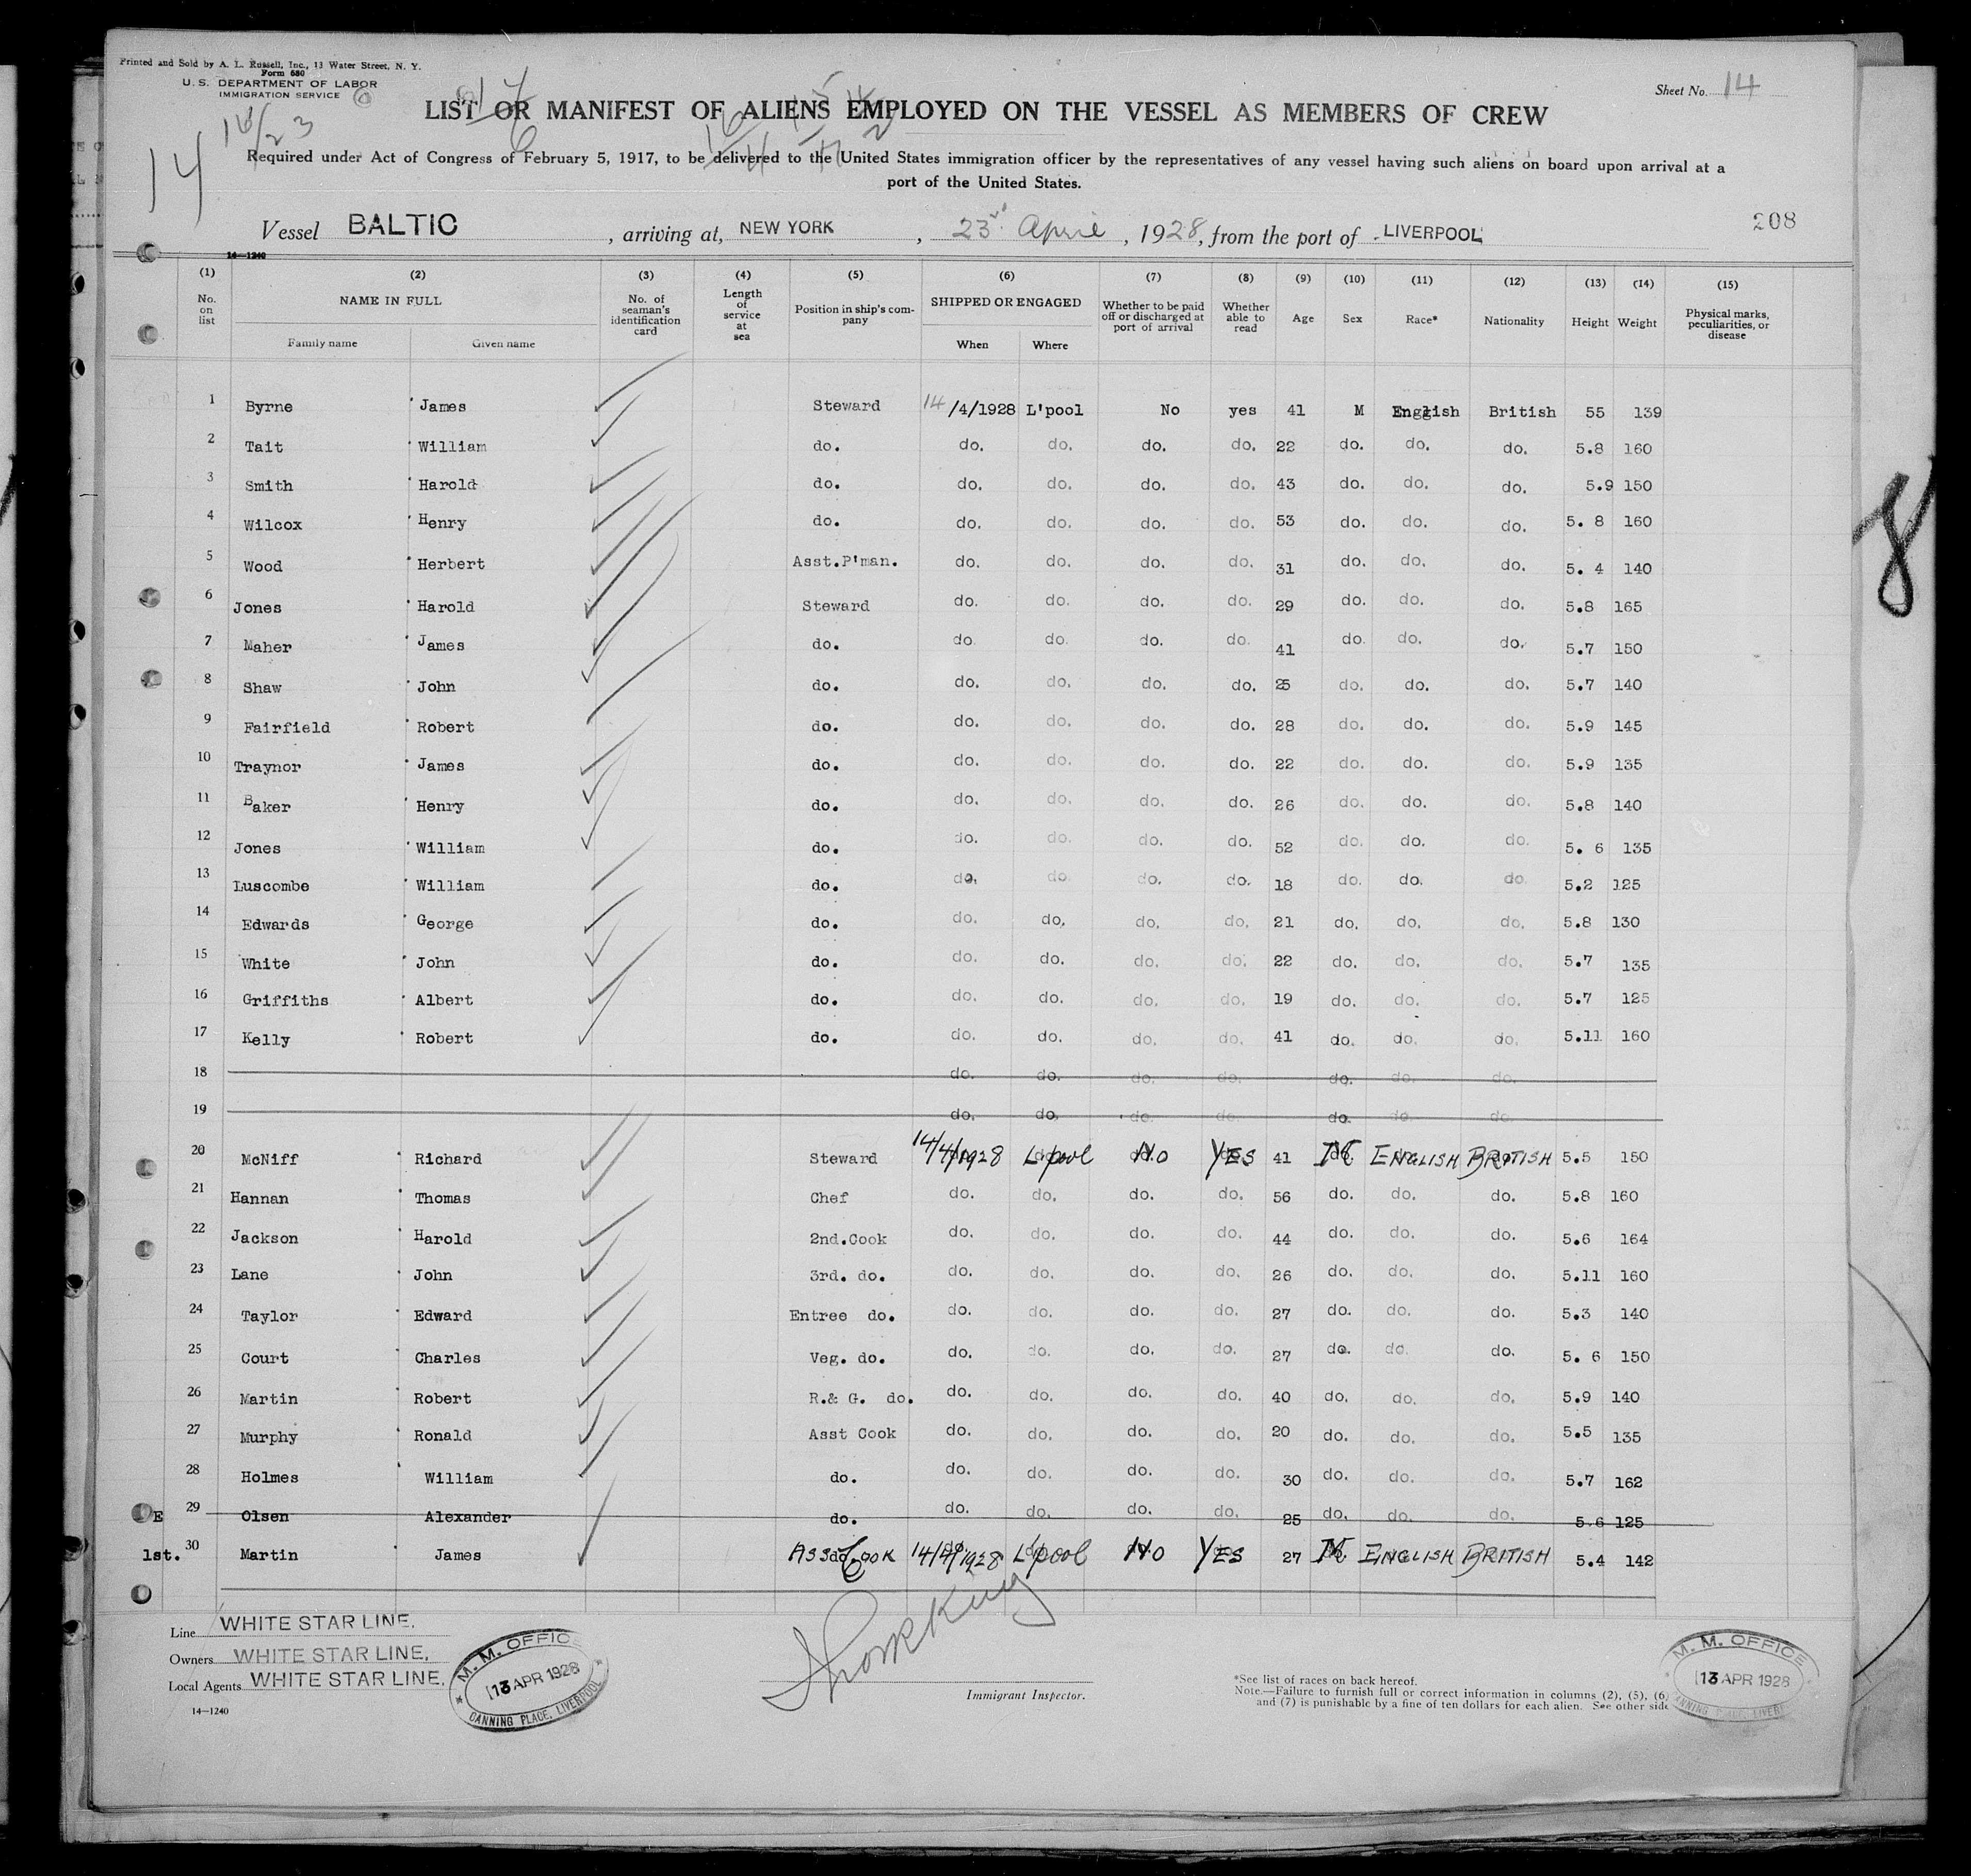 Printed and Sold by A. L. Russell, Inc., 13 Water Street, N. Y.
Form 680
U. S. DEPARTMENT OF LABOR
IMMIGRATION SERVICE
Sheet No. 14
LIST OR MANIFEST OF ALIENS EMPLOYED ON THE VESSEL AS MEMBERS OF CREW
14
Required under Act of Congress of February 5, 1917, to be delivered to the United States immigration officer by the representatives of any vessel having such aliens on board upon arrival at a
port of the United States.
208
Vessel BALTIC, arriving at, NEW YORK, 23rd April, 1928, from the port of LIVERPOOL
14—1240
(1) (2) (3) (4) (5) (6) (7) (8) (9) (10) (11) (12) (13) (14) (15)
No. on list NAME IN FULL Family name Given name No. of seaman's identification card Length of service at sea Position in ship's company SHIPPED OR ENGAGED When Where Whether to be paid off or discharged at port of arrival Whether able to read Age Sex Race* Nationality Height Weight Physical marks, peculiarities, or disease
1 Byrne James Steward 14/4/1928 L'pool No yes 41 M English British 55 139
2 Tait William do. do. do. do. do. 22 do. do. do. 5.8 160
3 Smith Harold do. do. do. do. do. 43 do. do. do. 5.9 150
4 Wilcox Henry do. do. do. do. do. 53 do. do. do. 5. 8 160
5 Wood Herbert Asst.P'man. do. do. do. do. 31 do. do. do. 5. 4 140
6 Jones Harold Steward do. do. do. do. 29 do. do. do. 5.8 165
7 Maher James do. do. do. do. do. 41 do. do. do. 5.7 150
8 Shaw John do. do. do. do. do. 25 do. do. do. 5.7 140
9 Fairfield Robert do. do. do. do. do. 28 do. do. do. 5.9 145
10 Traynor James do. do. do. do. do. 22 do. do. do. 5.9 135
11 Baker Henry do. do. do. do. do. 26 do. do. do. 5.8 140
12 Jones William do. do. do. do. do. 52 do. do. do. 5. 6 135
13 Luscombe William do. do. do. do. do. 18 do. do. do. 5.2 125
14 Edwards George do. do. do. do. do. 21 do. do. do. 5.8 130
15 White John do. do. do. do. do. 22 do. do. do. 5.7 135
16 Griffiths Albert do. do. do. do. do. 19 do. do. do. 5.7 125
17 Kelly Robert do. do. do. do. do. 41 do. do. do. 5.11 160
18 do. do. do. do. do. do. do.
19 do. do. do. do. do. do. do.
20 McNiff Richard Steward 14/4/1928 L'pool No YES 41 M ENGLISH BRITISH 5.5 150
21 Hannan Thomas Chef do. do. do. do. 56 do. do. do. 5.8 160
22 Jackson Harold 2nd.Cook do. do. do. do. 44 do. do. do. 5.6 164
23 Lane John 3rd. do. do. do. do. do. 26 do. do. do. 5.11 160
24 Taylor Edward Entree do. do. do. do. do. 27 do. do. do. 5.3 140
25 Court Charles Veg. do. do. do. do. do. 27 do. do. do. 5. 6 150
26 Martin Robert R.& G. do. do. do. do. do. 40 do. do. do. 5.9 140
27 Murphy Ronald Asst Cook do. do. do. do. 20 do. do. do. 5.5 135
28 Holmes William do. do. do. do. do. 30 do. do. do. 5.7 162
E 29 Olsen Alexander do. do. do. do. do. 25 do. do. do. 5.6 125
1st. 30 Martin James Asst Cook 14/4/1928 L'pool No YES 27 M ENGLISH BRITISH 5.4 142
Line WHITE STAR LINE.
Owners WHITE STAR LINE.
Local Agents WHITE STAR LINE.
14—1240
M. M. OFFICE
13 APR 1928
CANNING PLACE, LIVERPOOL
Immigrant Inspector.
*See list of races on back hereof.
Note.—Failure to furnish full or correct information in columns (2), (5), (6)
and (7) is punishable by a fine of ten dollars for each alien. See other side
M. M. OFFICE
13 APR 1928
8